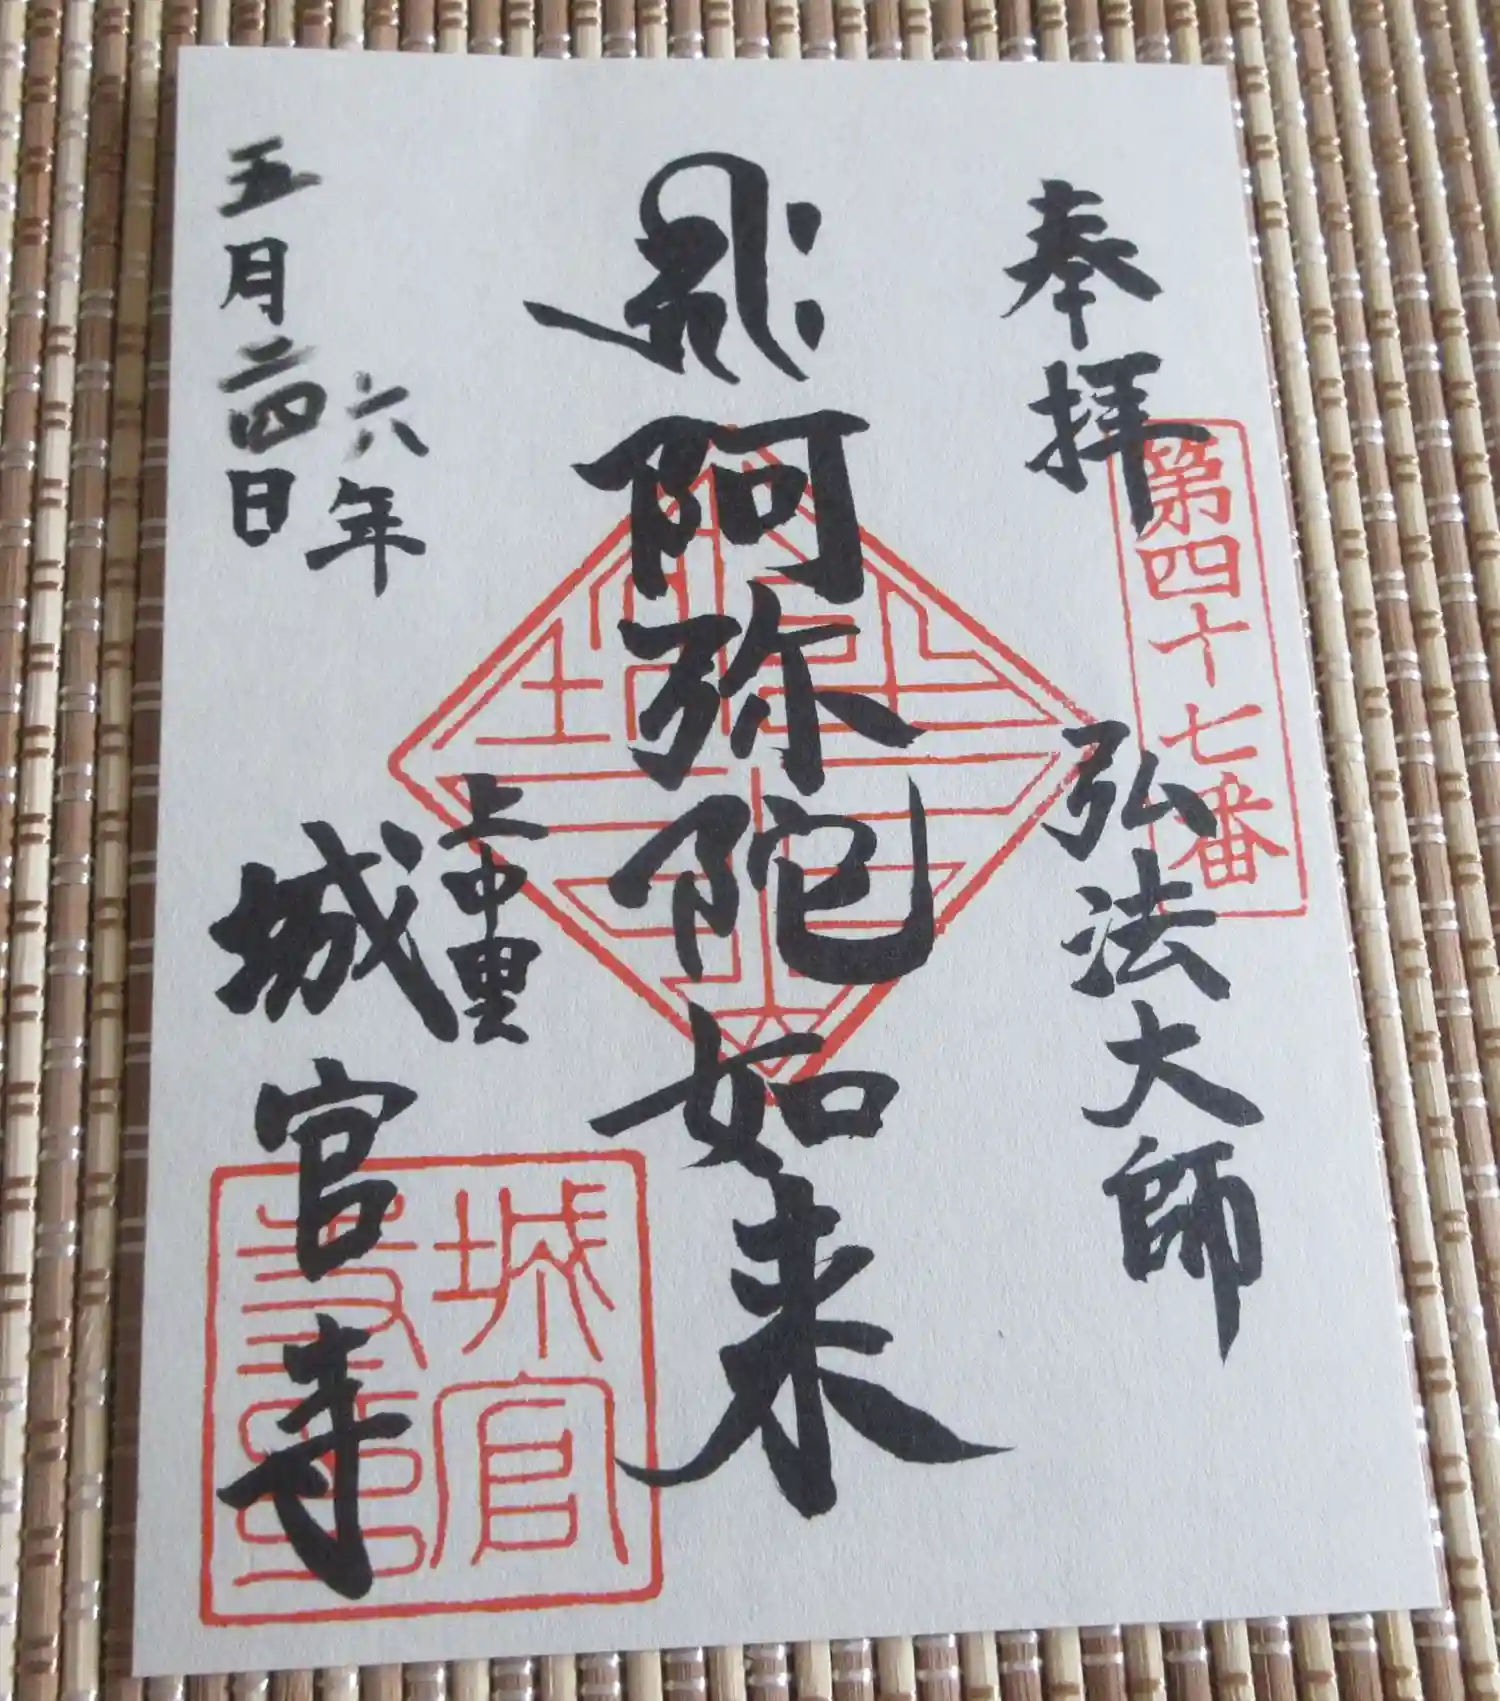 奉拝
第四十七番
弘法大師
阿弥陀如来
上中里
城官寺
城官
六年
五月二四日